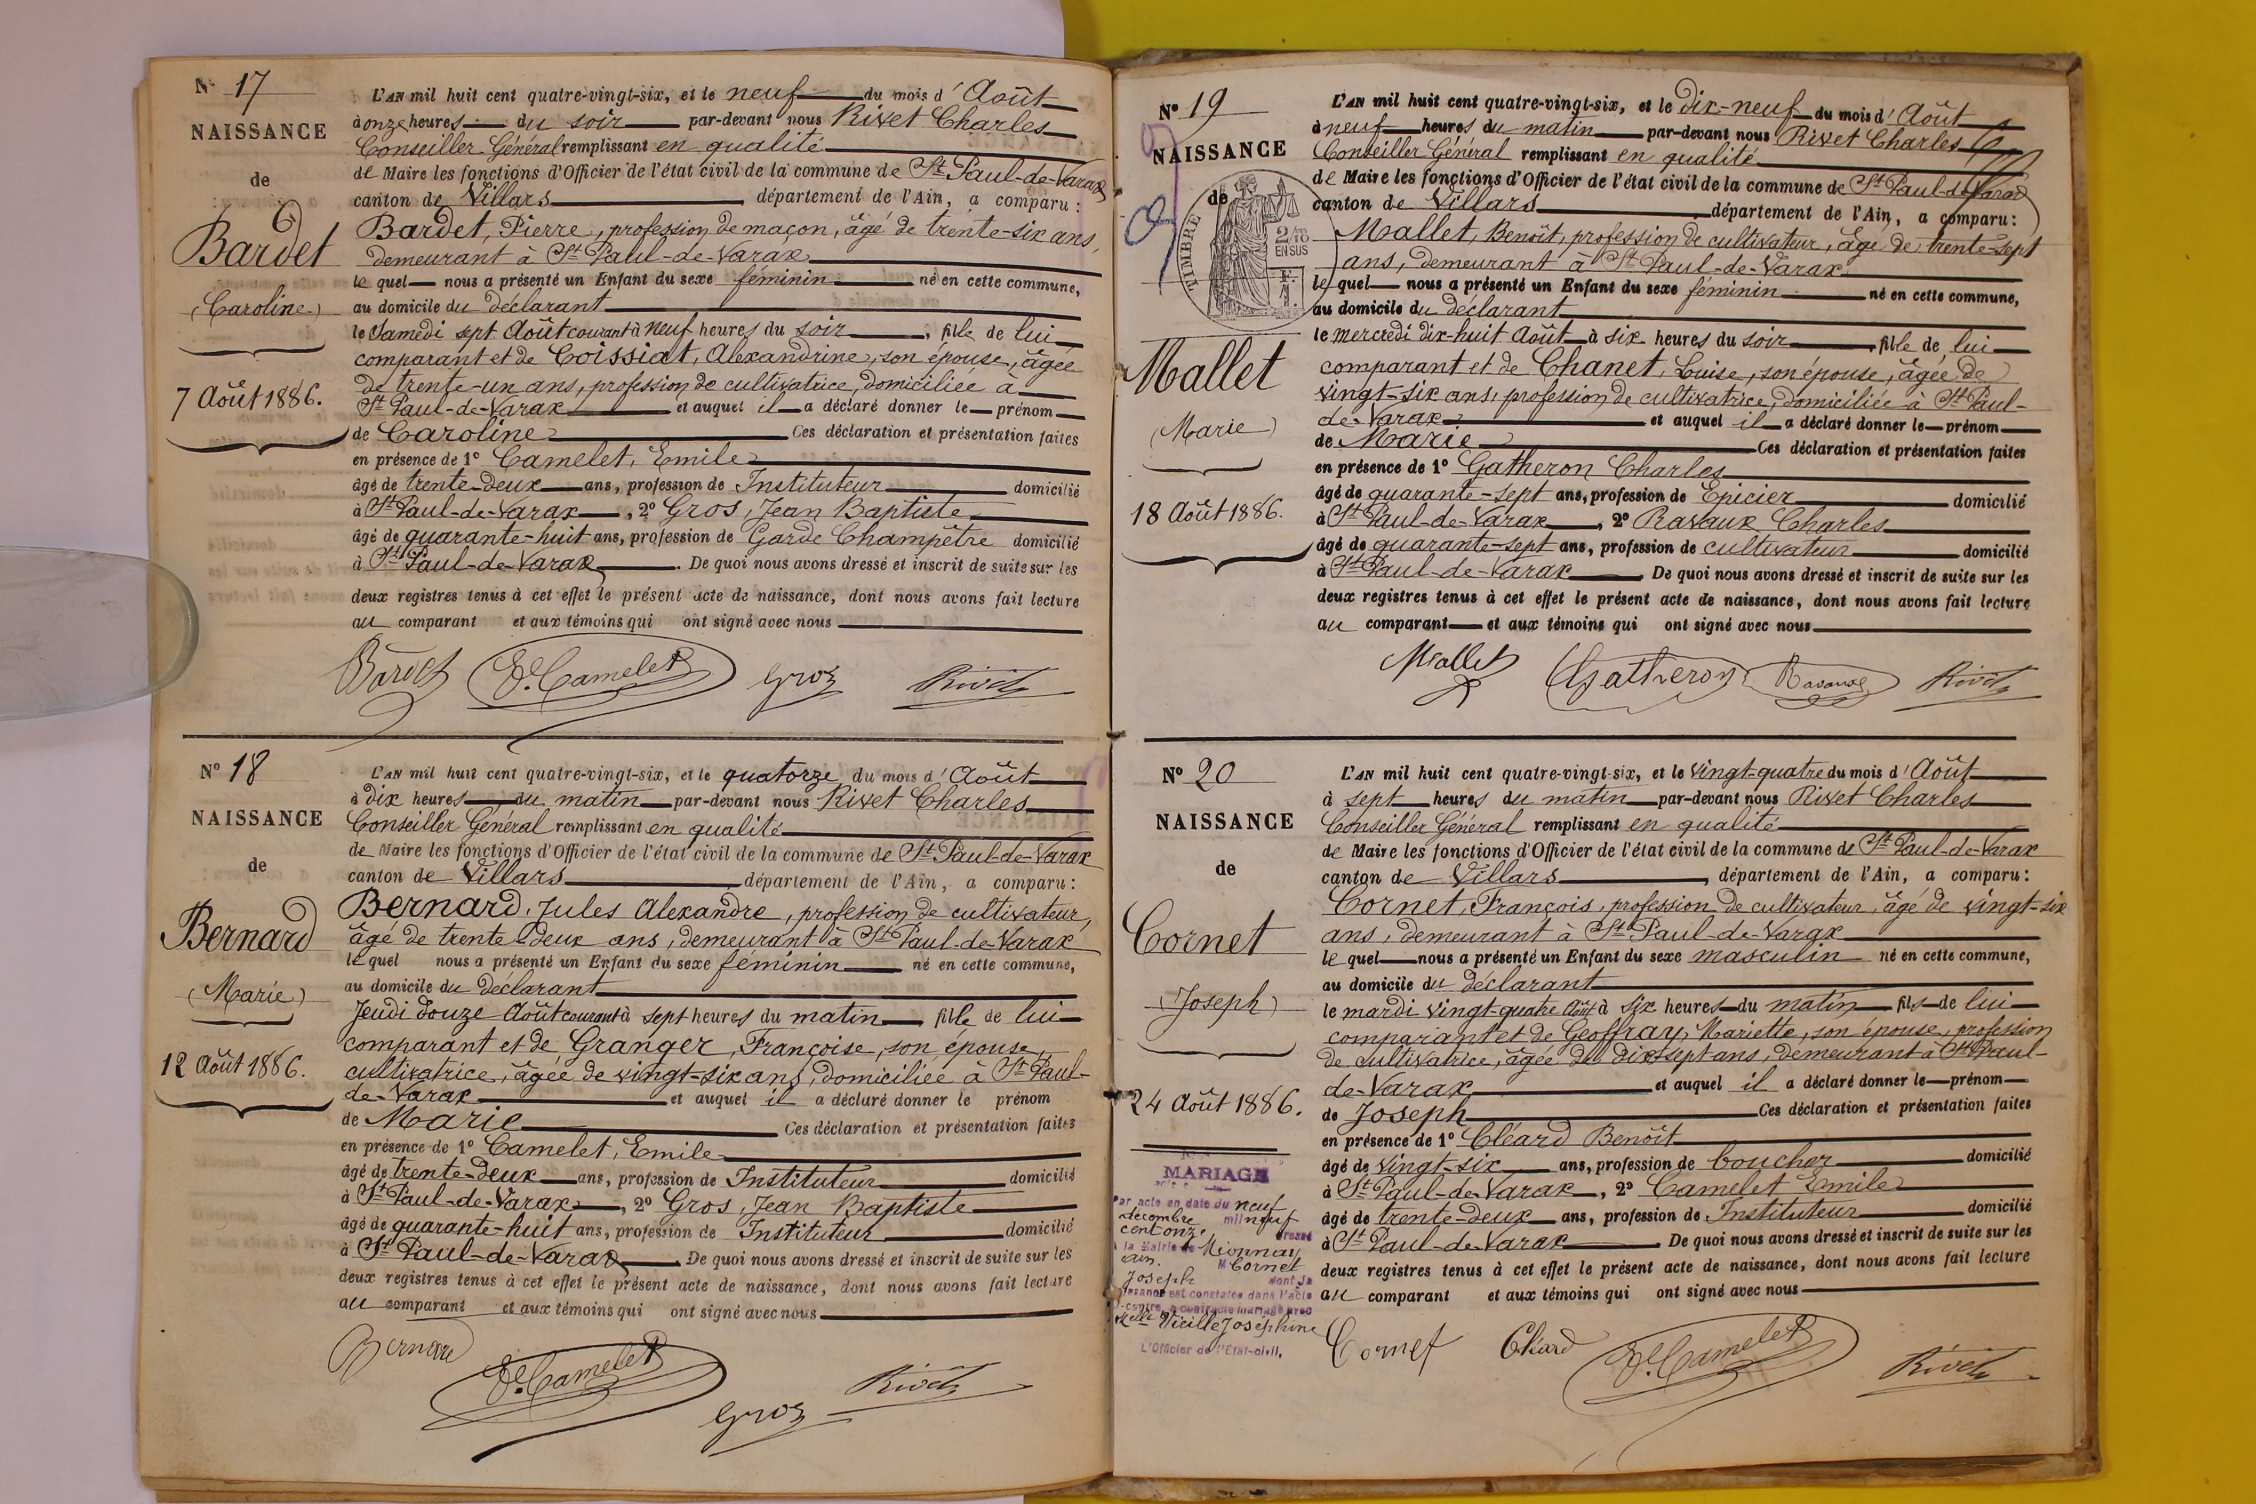 N° 17
NAISSANCE
de
Bardet
(Caroline)
7 Août 1886.
L'AN mil huit cent quatre-vingt-six, et le neuf du mois d'Août
à onze heures du soir par-devant nous Rivet Charles
Conseiller Général remplissant en qualité
de Maire les fonctions d'Officier de l'état civil de la commune de St Paul-de-Varax
canton de Villars département de l'Ain, a comparu :
Bardet, Pierre, profession de maçon, âgé de trente-six ans,
demeurant à St Paul-de-Varax
le quel nous a présenté un Enfant du sexe féminin né en cette commune,
au domicile du déclarant
le Samedi sept Août courant à neuf heures du soir, fille de lui
comparant et de Coissiat, Alexandrine, son épouse, âgée
de trente-un ans, profession de cultivatrice, domiciliée à
St Paul-de-Varax et auquel il a déclaré donner le prénom
de Caroline Ces déclaration et présentation faites
en présence de 1° Camelet, Emile
âgé de trente-deux ans, profession de Instituteur domicilié
à St Paul-de-Varax, 2° Gros, Jean Baptiste
âgé de quarante-huit ans, profession de Garde Champêtre domicilié
à St Paul-de-Varax. De quoi nous avons dressé et inscrit de suite sur les
deux registres tenus à cet effet le présent acte de naissance, dont nous avons fait lecture
au comparant et aux témoins qui ont signé avec nous
Bardet E. Camelet Gros Rivet
N° 18
NAISSANCE
de
Bernard
(Marie)
12 Août 1886.
L'AN mil huit cent quatre-vingt-six, et le quatorze du mois d'Août
à dix heures du matin par-devant nous Rivet Charles
Conseiller Général remplissant en qualité
de Maire les fonctions d'Officier de l'état civil de la commune de St Paul-de-Varax
canton de Villars département de l'Ain, a comparu :
Bernard, Jules Alexandre, profession de cultivateur,
âgé de trente-deux ans, demeurant à St Paul-de-Varax
le quel nous a présenté un Enfant du sexe féminin né en cette commune,
au domicile du déclarant
Jeudi douze Août courant à sept heures du matin fille de lui
comparant et de Granger, Françoise, son épouse,
cultivatrice, âgée de vingt-six ans, domiciliée à St Paul-
de-Varax et auquel il a déclaré donner le prénom
de Marie Ces déclaration et présentation faites
en présence de 1° Camelet, Emile
âgé de trente-deux ans, profession de Instituteur domicilié
à St Paul-de-Varax, 2° Gros, Jean Baptiste
âgé de quarante-huit ans, profession de Instituteur domicilié
à St Paul-de-Varax. De quoi nous avons dressé et inscrit de suite sur les
deux registres tenus à cet effet le présent acte de naissance, dont nous avons fait lecture
au comparant et aux témoins qui ont signé avec nous
Bernard E. Camelet Gros Rivet
N° 19
NAISSANCE
de
TIMBRE
2/10
EN SUS
Mallet
(Marie)
18 Août 1886.
L'AN mil huit cent quatre-vingt-six, et le dix-neuf du mois d'Août
à neuf heures du matin par-devant nous Rivet Charles
Conseiller Général remplissant en qualité
de Maire les fonctions d'Officier de l'état civil de la commune de St Paul-de-Varax
canton de Villars département de l'Ain, a comparu :
Mallet, Benoît, profession de cultivateur, âgé de trente-sept
ans, demeurant à St Paul-de-Varax
le quel nous a présenté un Enfant du sexe féminin né en cette commune,
au domicile du déclarant
le mercredi dix-huit Août à six heures du soir, fille de lui
comparant et de Chanet, Luise, son épouse, âgée de
vingt-six ans, profession de cultivatrice, domiciliée à St Paul-
de-Varax et auquel il a déclaré donner le prénom
de Marie Ces déclaration et présentation faites
en présence de 1° Gatheron Charles
âgé de quarante-sept ans, profession de Epicier domicilié
à St Paul-de-Varax, 2° Ravaux Charles
âgé de quarante-sept ans, profession de cultivateur domicilié
à St Paul-de-Varax De quoi nous avons dressé et inscrit de suite sur les
deux registres tenus à cet effet le présent acte de naissance, dont nous avons fait lecture
au comparant et aux témoins qui ont signé avec nous
Mallet Gatheron Ravaux Rivet
N° 20
NAISSANCE
de
Cornet
(Joseph)
24 Août 1886.
MARIAGE
Par acte en date du neuf
décembre mil neuf
cent onze dressé
à la Mairie de Mionnay
Ain. M Cornet
Joseph dont la
naissance est constatée dans l'acte
ci-contre, a contracté mariage avec
Melle Vieille Joséphine
L'Officier de l'État-civil,
L'AN mil huit cent quatre-vingt-six, et le vingt-quatre du mois d'Août
à sept heures du matin par-devant nous Rivet Charles
Conseiller Général remplissant en qualité
de Maire les fonctions d'Officier de l'état civil de la commune de St Paul-de-Varax
canton de Villars, département de l'Ain, a comparu :
Cornet, François, profession de cultivateur, âgé de vingt-six
ans, demeurant à St Paul-de-Varax
le quel nous a présenté un Enfant du sexe masculin né en cette commune,
au domicile du déclarant
le mardi vingt-quatre Août à six heures du matin fils de lui
comparant et de Geoffray, Mariette, son épouse, profession
de cultivatrice, âgée de dix-sept ans, demeurant à St Paul-
de-Varax et auquel il a déclaré donner le prénom
de Joseph Ces déclaration et présentation faites
en présence de 1° Cléard Benoît
âgé de vingt-six ans, profession de boucher domicilié
à St Paul-de-Varax, 2° Camelet Emile
âgé de trente-deux ans, profession de Instituteur domicilié
à St Paul-de-Varax De quoi nous avons dressé et inscrit de suite sur les
deux registres tenus à cet effet le présent acte de naissance, dont nous avons fait lecture
au comparant et aux témoins qui ont signé avec nous
Cornet Cléard E. Camelet Rivet